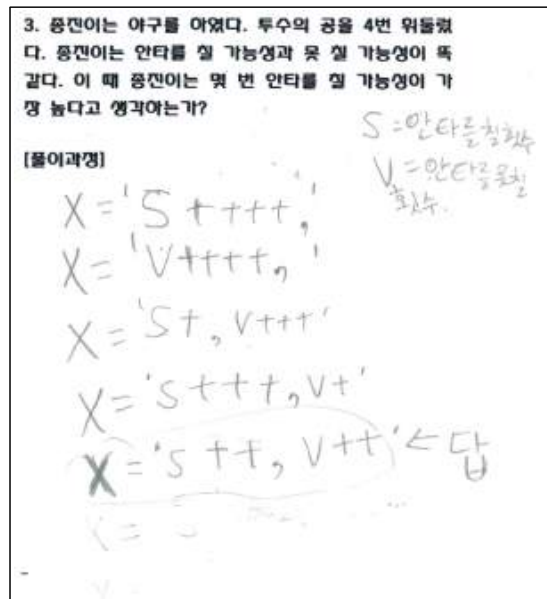 3. 종진이는 야구를 하였다. 투수의 공을 4번 휘둘렀
다. 종진이는 안타를 칠 가능성과 못 칠 가능성이 똑
같다. 이 때 종진이는 몇 번 안타를 칠 가능성이 가
장 높다고 생각하는가?
S=안타를칠횟수
[풀이과정]
V=안타를못칠
횟수.
X='S++++,'
X='V++++,'
X='S+,V+++'
X='S+++,V+'
X='S++,V++'←답